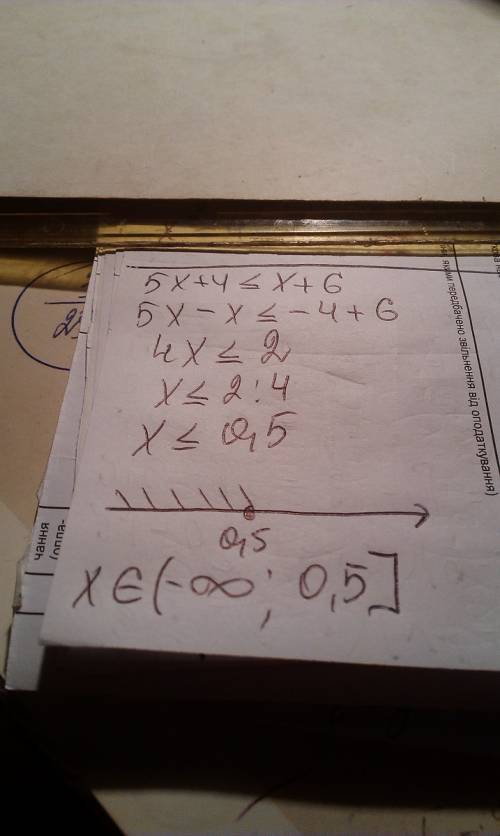 5x+4≤x+6
5x-x≤-4+6
4x≤2
x≤2:4
x≤0,5
0,5
x∈(-∞; 0,5]
якими передбачено звільнення від оподаткування)
чання